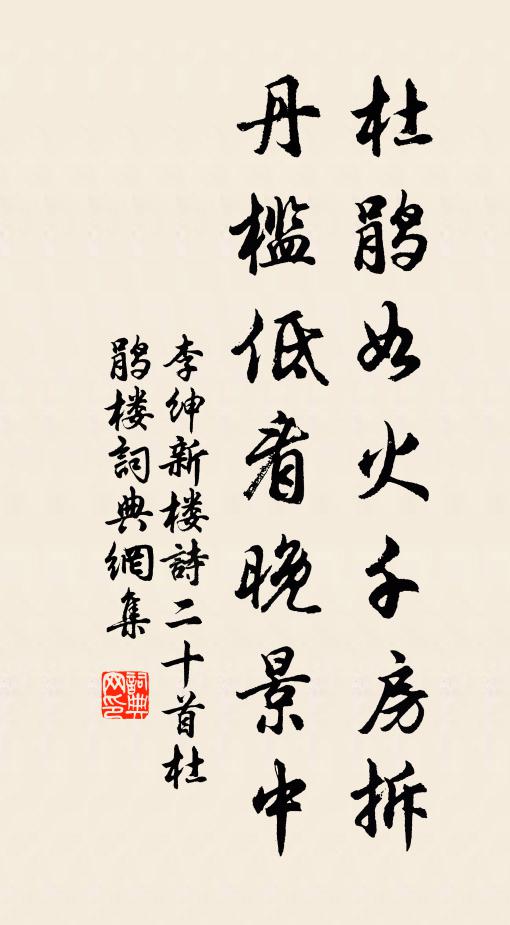 杜鹃如火千房拆
丹槛低看晚景中
李绅新楼詩二十首杜
鹃楼詞典網集
詞典
网印